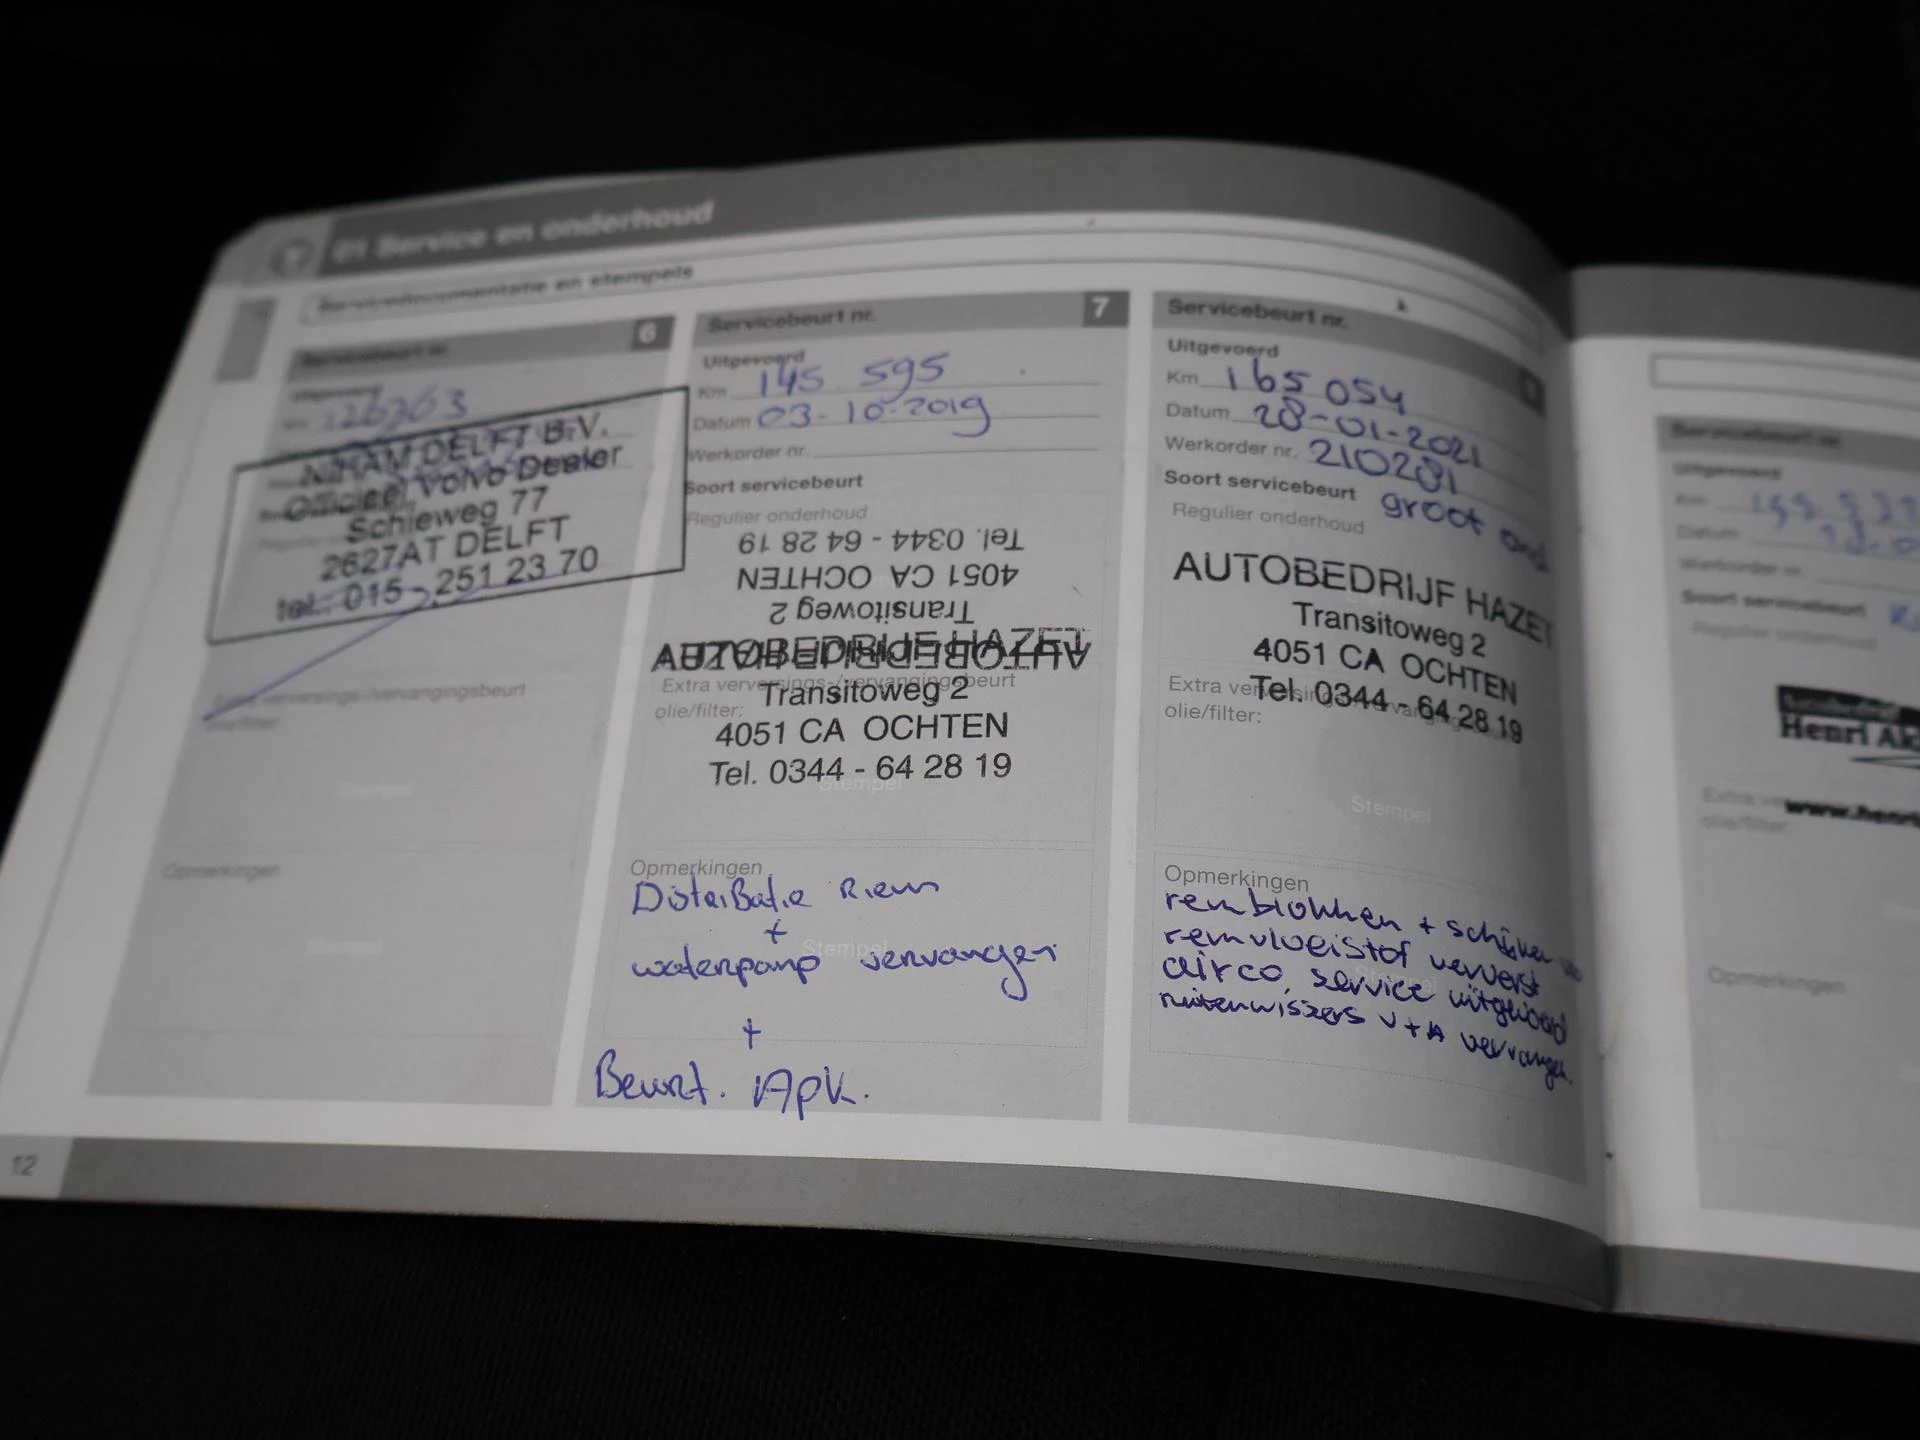 01 Service en onderhoud
Servicedocumentatie en stempels
Servicebeurt nr. 6
Uitgevoerd
Km 126363
NIHAM DELFT B.V.
Officieel Volvo Dealer
Schieweg 77
2627AT DELFT
tel.: 015 - 251 23 70
Extra verversings-/vervangingsbeurt
olie/filter:
Stempel
Opmerkingen
Stempel
Servicebeurt nr. 7
Uitgevoerd
Km 145 595
Datum 03-10-2019
Werkorder nr.
Soort servicebeurt
Regulier onderhoud
Tel. 0344 - 64 28 19
4051 CA OCHTEN
Transitoweg 2
AUTOBEDRIJF HAZET
AUTOBEDRIJF HAZET
Extra verversings-/vervangingsbeurt
Transitoweg 2
olie/filter:
4051 CA OCHTEN
Tel. 0344 - 64 28 19
Stempel
Opmerkingen
Distributie Riem
+
Stempel
waterpomp vervangen
+
Beurt. APK.
Servicebeurt nr.
Uitgevoerd
Km 165 054
Datum 28-01-2021
Werkorder nr. 210281
Soort servicebeurt groot
Regulier onderhoud
AUTOBEDRIJF HAZET
Transitoweg 2
4051 CA OCHTEN
Extra
Tel. 0344 - 64 28 19
olie/filter:
Stempel
Opmerkingen
remblokken + schijven
remvloeistof ververst
airco service uitgevoerd
ruitenwissers V+A vervangen.
12
Servicebeurt nr.
Uitgevoerd
Km
Datum
Werkorder nr.
Soort servicebeurt
Regulier onderhoud
Henri
Extra
www.henri
olie/filter:
Opmerkingen